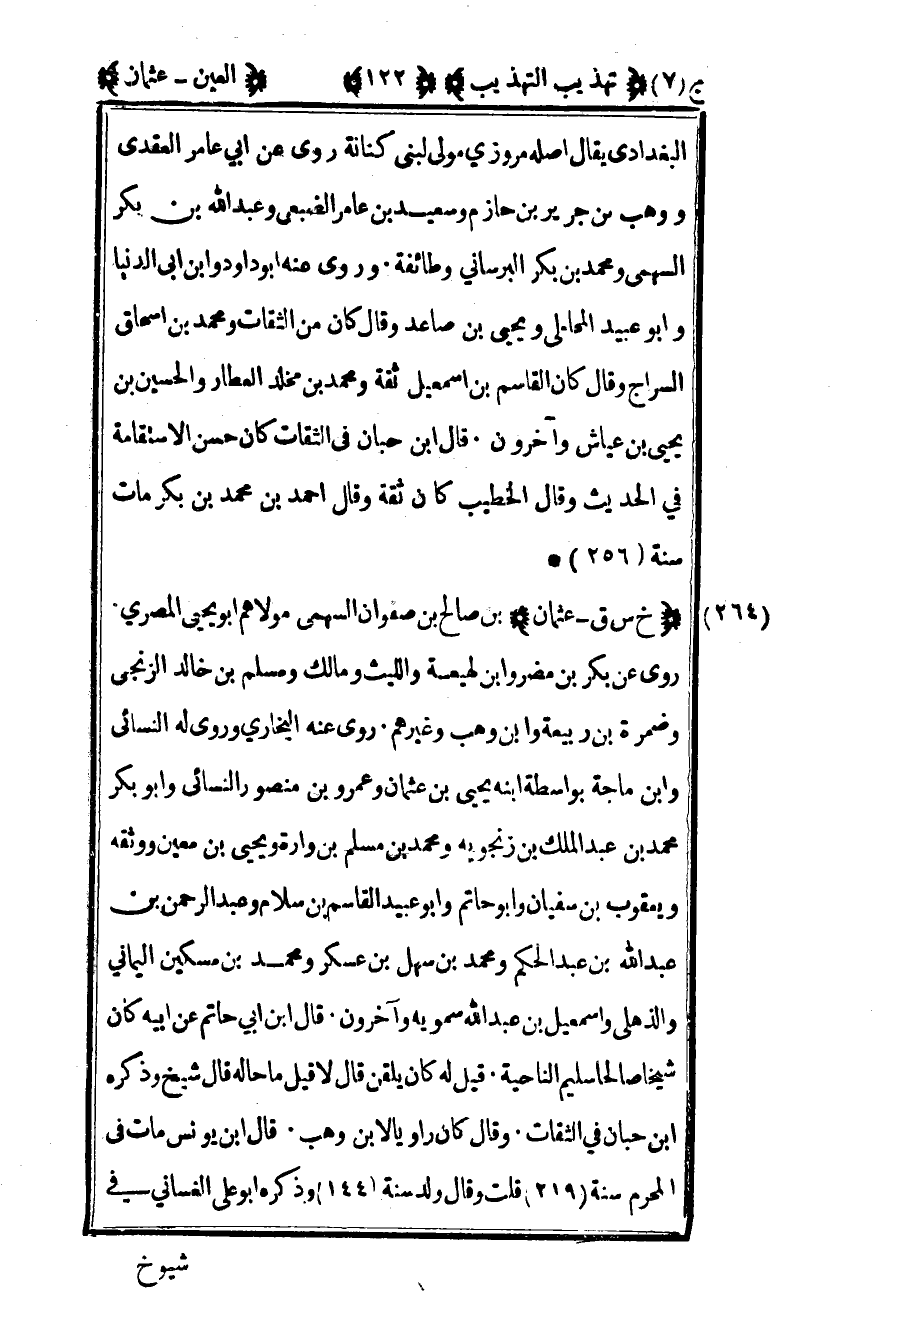 ج (٧) ﴿ تهذيب التهذيب ﴾ ﴿ ١٢٢ ﴾ ﴿ العين - عثمان ﴾
البغدادى يقال اصله مروزي مولى لبنى كنانة روى عن ابي عامر العقدى
و وهب بن جرير بن حازم وسعيد بن عامر الضبعى وعبدالله بن بكر
السهمى ومحمد بن بكر البرساني وطائفة · وروى عنه ابو داود وابن ابى الدنيا
و ابو عبيد المحاملى و يحيى بن صاعد وقال كان من الثقات ومحمد بن اسحاق
السراج وقال كان القاسم بن اسمعيل ثقة ومحمد بن مخلد العطار والحسين بن
يحيى بن عياش وآخرون · قال ابن حبان فى الثقات كان حسن الاستقامة
في الحديث وقال الخطيب كان ثقة وقال احمد بن محمد بن بكر مات
سنة (٢٥٦) •
(٢٦٤) ﴿ خ س ق - عثمان ﴾ بن صالح بن صفوان السهمى مولاهم ابو يحيى المصري ·
روى عن بكر بن مضر وابن لهيعة والليث ومالك ومسلم بن خالد الزنجى
وضمرة بن ربيعة وابن وهب وغيرهم · روى عنه البخاري وروى له النسائى
وابن ماجة بواسطة ابنه يحيى بن عثمان وعمرو بن منصور النسائى وابو بكر
محمد بن عبدالملك بن زنجويه ومحمد بن مسلم بن وارة ويحيى بن معين ووثقه
ويعقوب بن سفيان وابو حاتم وابو عبيد القاسم بن سلام وعبدالرحمن بن
عبدالله بن عبدالحكم ومحمد بن سهل بن عسكر ومحمد بن مسكين اليماني
والذهلى واسمعيل بن عبدالله سمويه وآخرون · قال ابن ابي حاتم عن ابيه كان
شيخا صالحا سليم الناحية · قيل له كان يلقن قال لا قيل ما حاله قال شيخ وذكره
ابن حبان في الثقات · وقال كان راويا لابن وهب · قال ابن يونس مات فى
المحرم سنة (٢١٩) قلت وقال ولد سنة (١٤٤) وذكره ابو على الغساني في
شيوخ